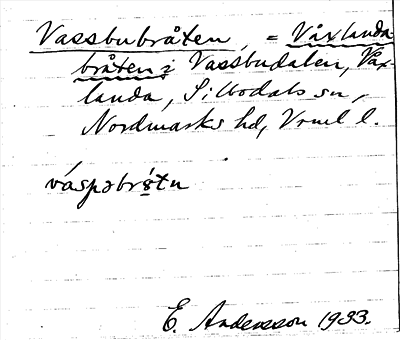 Vassbubråten, = Våxlanda-
bråten i Vassbudalen, Våx-
landa, Silbodals sn,
Nordmarks hd, Vrml l.
váspəbrǻtn
E. Andersson 1933.